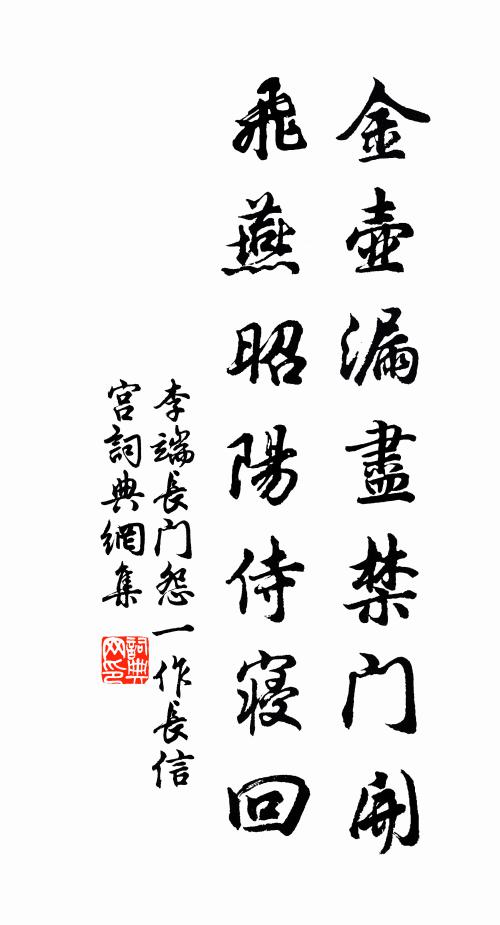 金壺漏盡禁门開
飛燕昭陽侍寝回
李端长门怨一作长信
宮詞典網集
詞典网印